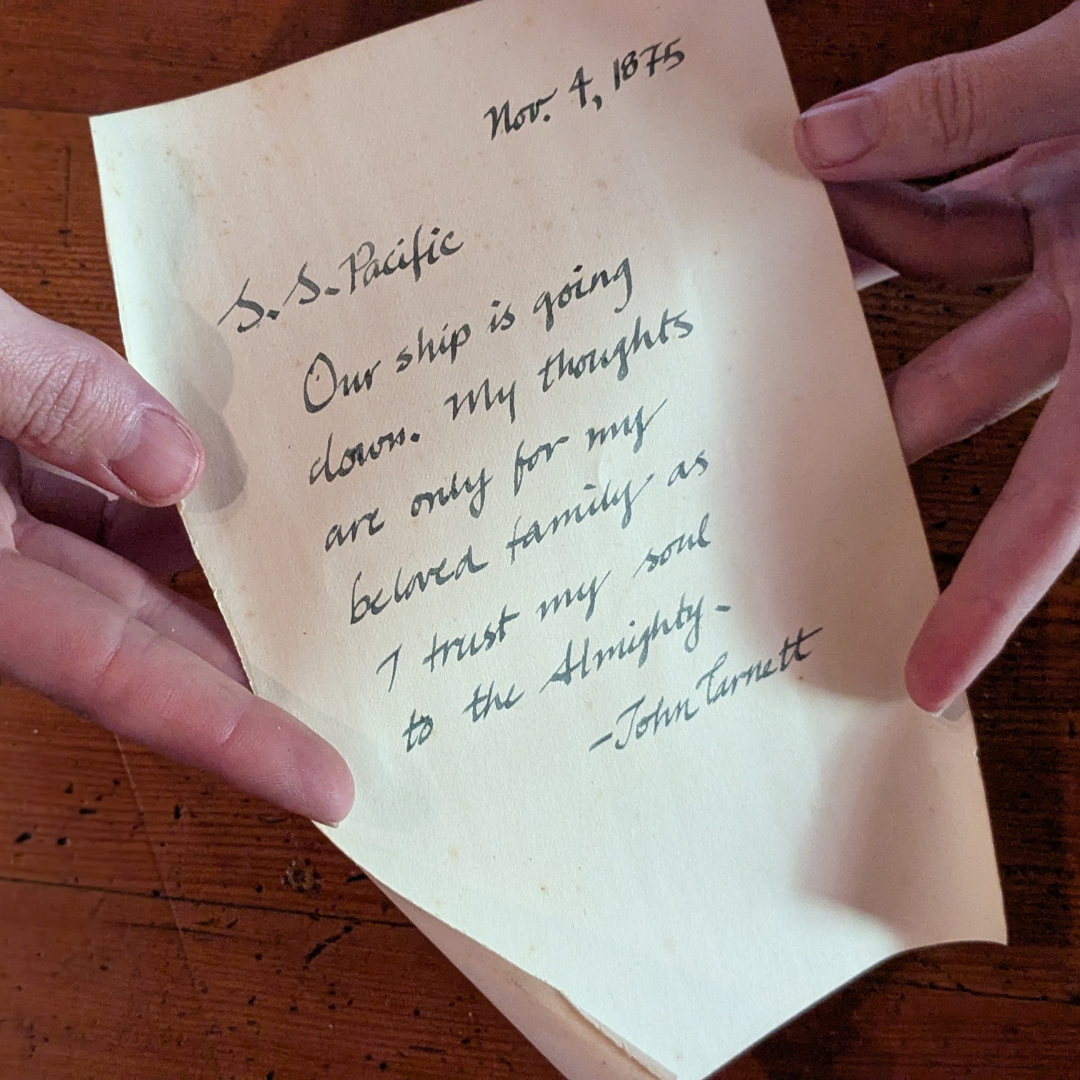 Nov. 4, 1875
S. S. Pacific
Our ship is going
down. My thoughts
are only for my
beloved family as
I trust my soul
to the Almighty.
-John Tarnett